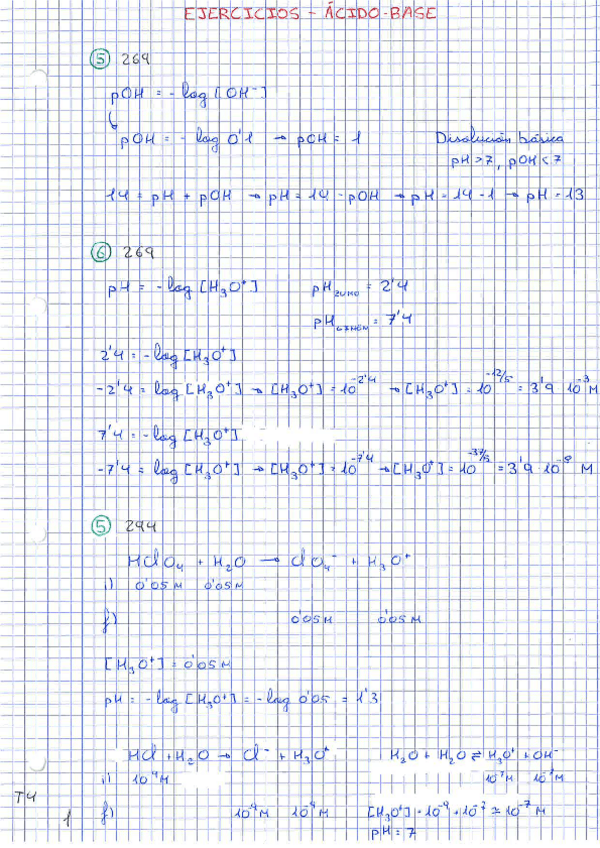 EJERCICIOS - ÁCIDO-BASE
⑤ 269
pOH = - log [OH⁻]
pOH = - log 0'1 → pOH = 1
Disolución básica
pH > 7, pOH < 7
14 = pH + pOH → pH = 14 - pOH → pH = 14 - 1 → pH = 13
⑥ 269
pH = - log [H₃O⁺]
pH ZUMO = 2'4
pH LIMÓN = 7'4
2'4 = - log [H₃O⁺]
-2'4 = log [H₃O⁺] → [H₃O⁺] = 10^-2'4 → [H₃O⁺] = 10^-12/5 = 3'9 10⁻³ M
7'4 = - log [H₃O⁺]
-7'4 = log [H₃O⁺] → [H₃O⁺] = 10^-7'4 → [H₃O⁺] = 10^-37/5 = 3'9 10⁻⁸ M
⑤ 294
HClO₄ + H₂O → ClO₄⁻ + H₃O⁺
i) 0'05 M 0'05 M
f) 0'05 M 0'05 M
[H₃O⁺] = 0'05 M
pH = - log [H₃O⁺] = - log 0'05 = 1'3
HCl + H₂O → Cl⁻ + H₃O⁺
H₂O + H₂O ⇌ H₃O⁺ + OH⁻
i) 10⁻⁹ M
10⁻⁷ M 10⁻⁷ M
f) 10⁻⁹ M 10⁻⁹ M
[H₃O⁺] = 10⁻⁹ + 10⁻⁷ ≈ 10⁻⁷ M
pH = 7
T4
1